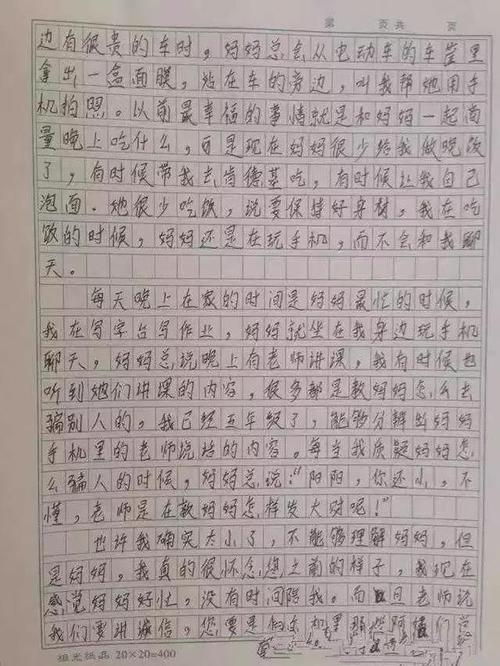 第 页共 页
边有很贵的车时，妈妈总会从电动车的车筐里
拿出一盒面膜，站在车的旁边，叫我帮她用手
机拍照。以前最幸福的事情就是和妈妈一起商
量晚上吃什么，可是现在妈妈很少给我做晚饭
了，有时候带我去肯德基吃，有时候让我自己
泡面．她很少吃饭，说要保持好身材，我在吃
饭的时候，妈妈还是在玩手机，而不会和我聊
天。
每天晚上在家的时间是妈妈最忙的时候，
我在写字台写作业，妈妈就坐在我身边玩手机
聊天，妈妈总说晚上有老师讲课，我有时候也
听到她们讲课的内容，很多都是教妈妈怎么去
骗别人的，我已经五年级了，能够分辨出妈妈
手机里的老师说话的内容。每当我质疑妈妈怎
么骗人的时候，妈妈总说：“阳阳，你还小，不
懂，老师是在教妈妈怎样发大财呢！”
也许我确实太小了，不能够理解妈妈，但
是妈妈，我真的很怀念您之前的样子，我现在
感觉妈妈好忙，没有时间陪我。 老师说
我们要讲诚信，您要是
旭光纸品 20×20=400